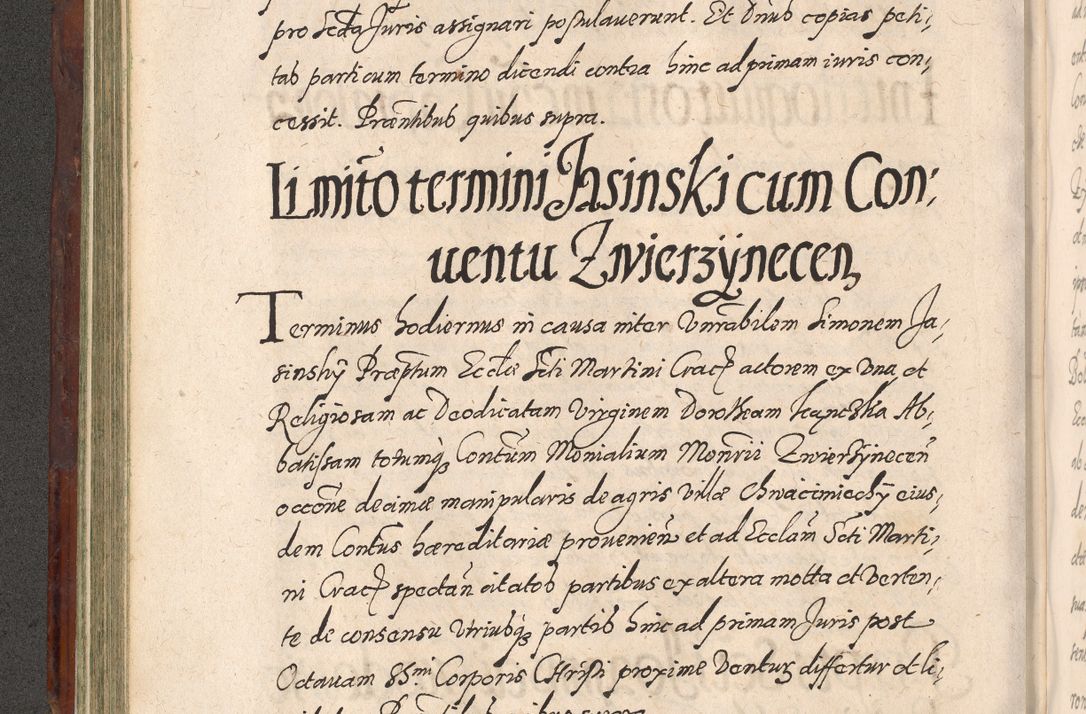 pro Scda Juris assignari postulauerunt. Et Dnus copias peti,
tas parti cum termino dicendi contra hinc ad primam iuris con,
cessit. Praentibus quibus supra.
Limito termini Jasinski cum Con,
uentu Zwierzÿnecen,
Terminus hodiernus in causa inter Vnrabilem Simonem Ja,
sinskÿ Praeptum Eccłae Scti Martini Crac actorem ex vna, et
Religiosam ac Deodicatam Virginem Dorotheam Kapczska Ab,
batissam totumq Contum Monialium Monrii Zwierzÿnecen
occone decimae manipularis de agris villae Chwacimiechÿ eius,
dem Contus haereditariae prouenien et ad Ecclam Scti Marti,
ni Crac spectan citatos partibus ex altera motta et verten,
te de consensu vtriusq partis hinc ad primam Juris post
Octauam SSmi Corporis Christi proxime ventur differtur et li,